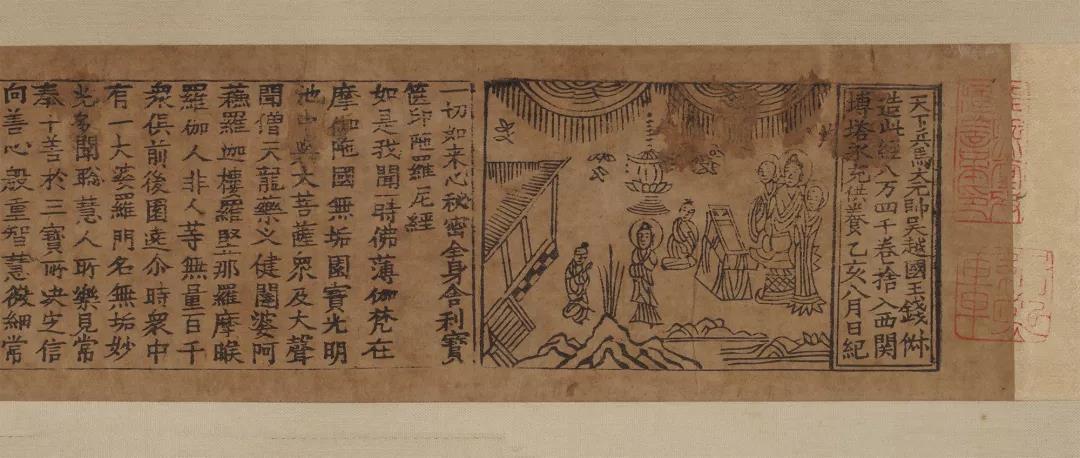 天下兵馬大元帥吳越國王錢俶
造此經八万四千卷捨入西關
塼塔永充供養乙亥八月日紀
一切如来心秘密全身舍利寶
篋印陁羅尼經
如是我聞時佛薄伽梵在
摩伽陁國無垢園寶光明
池中與大菩薩衆及大聲
聞僧天龍藥叉健闥婆阿
蘓羅迦樓羅緊那羅摩睺
羅伽人非人等無量百千
衆俱前後圍遶尒時衆中
有一大婆羅門名無垢妙
光多聞聡慧人所樂見常
奉十善於三寶所决定信
向善心殷重智慧微細常